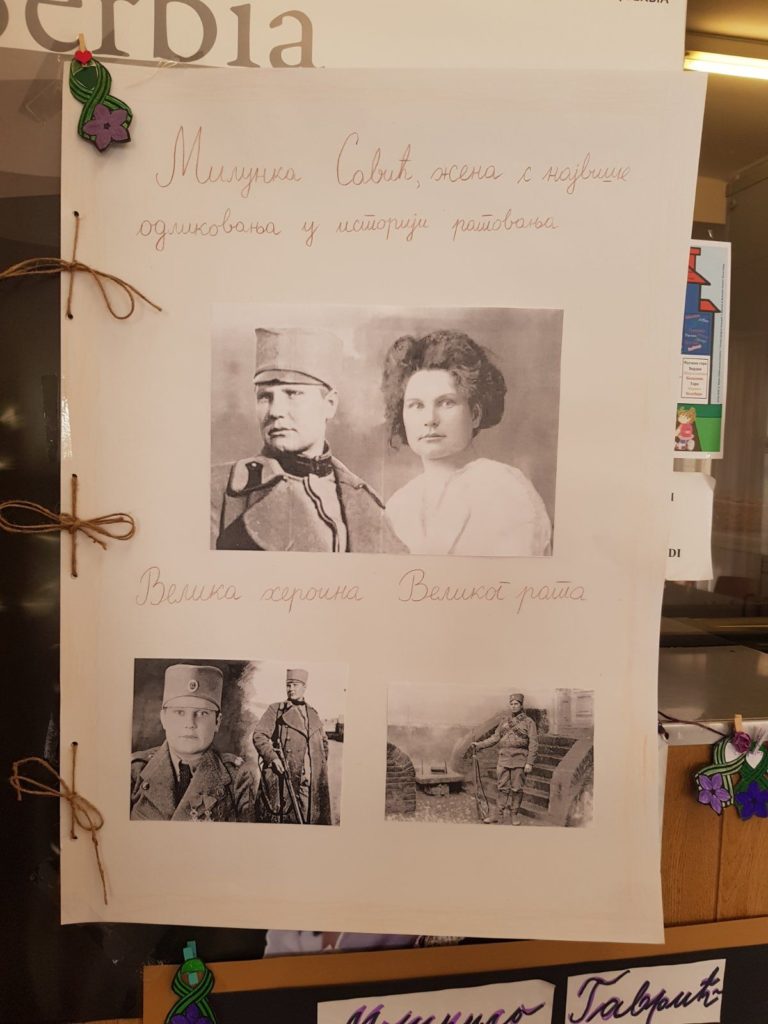 Serbia
Милунка Савић, жена с највише
одликовања у историји ратовања
Велика хероина Великог рата
DI
Гаврић